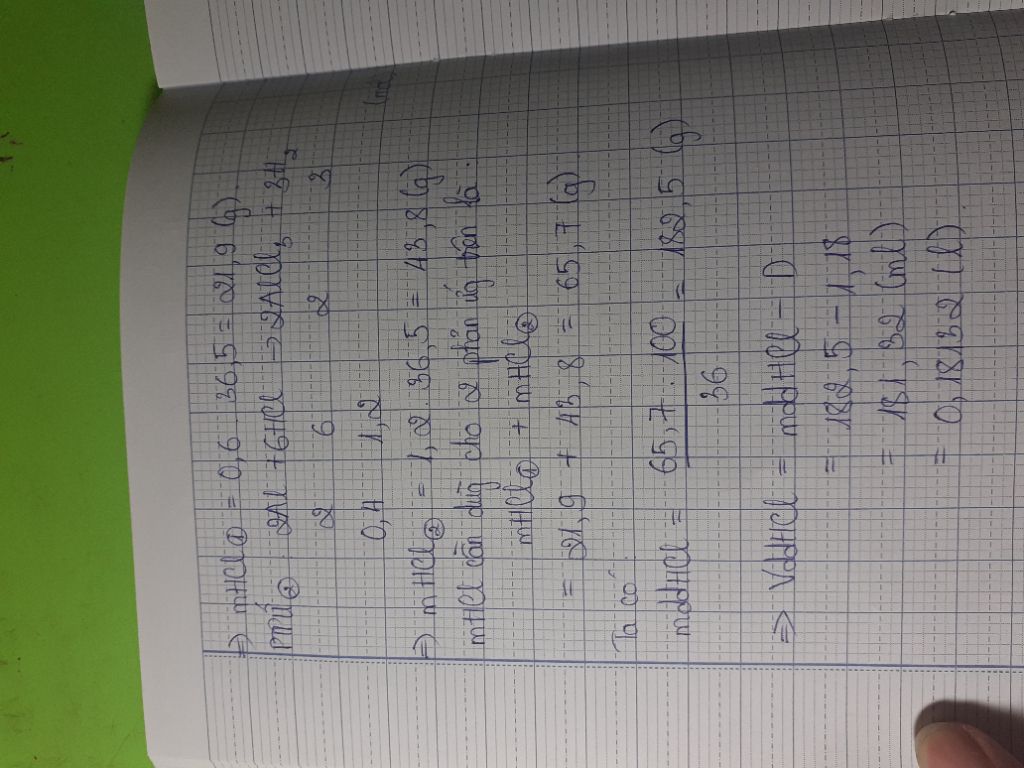 => mHCl① = 0,6 . 36,5 = 21,9 (g)
PTPỨ② : 2Al + 6HCl -> 2AlCl3 + 3H2
2 6 2 3
0,4 1,2 (mol
=> mHCl② = 1,2 . 36,5 = 43,8 (g)
mHCl cần dùg cho 2 phản ứg trên là :
mHCl① + mHCl②
= 21,9 + 43,8 = 65,7 (g)
Ta có :
mddHCl = 65,7 . 100 / 36 = 182,5 (g)
=> VddHCl = mddHCl - D
= 182,5 - 1,18
= 181,32 (ml)
= 0,18132 (l)